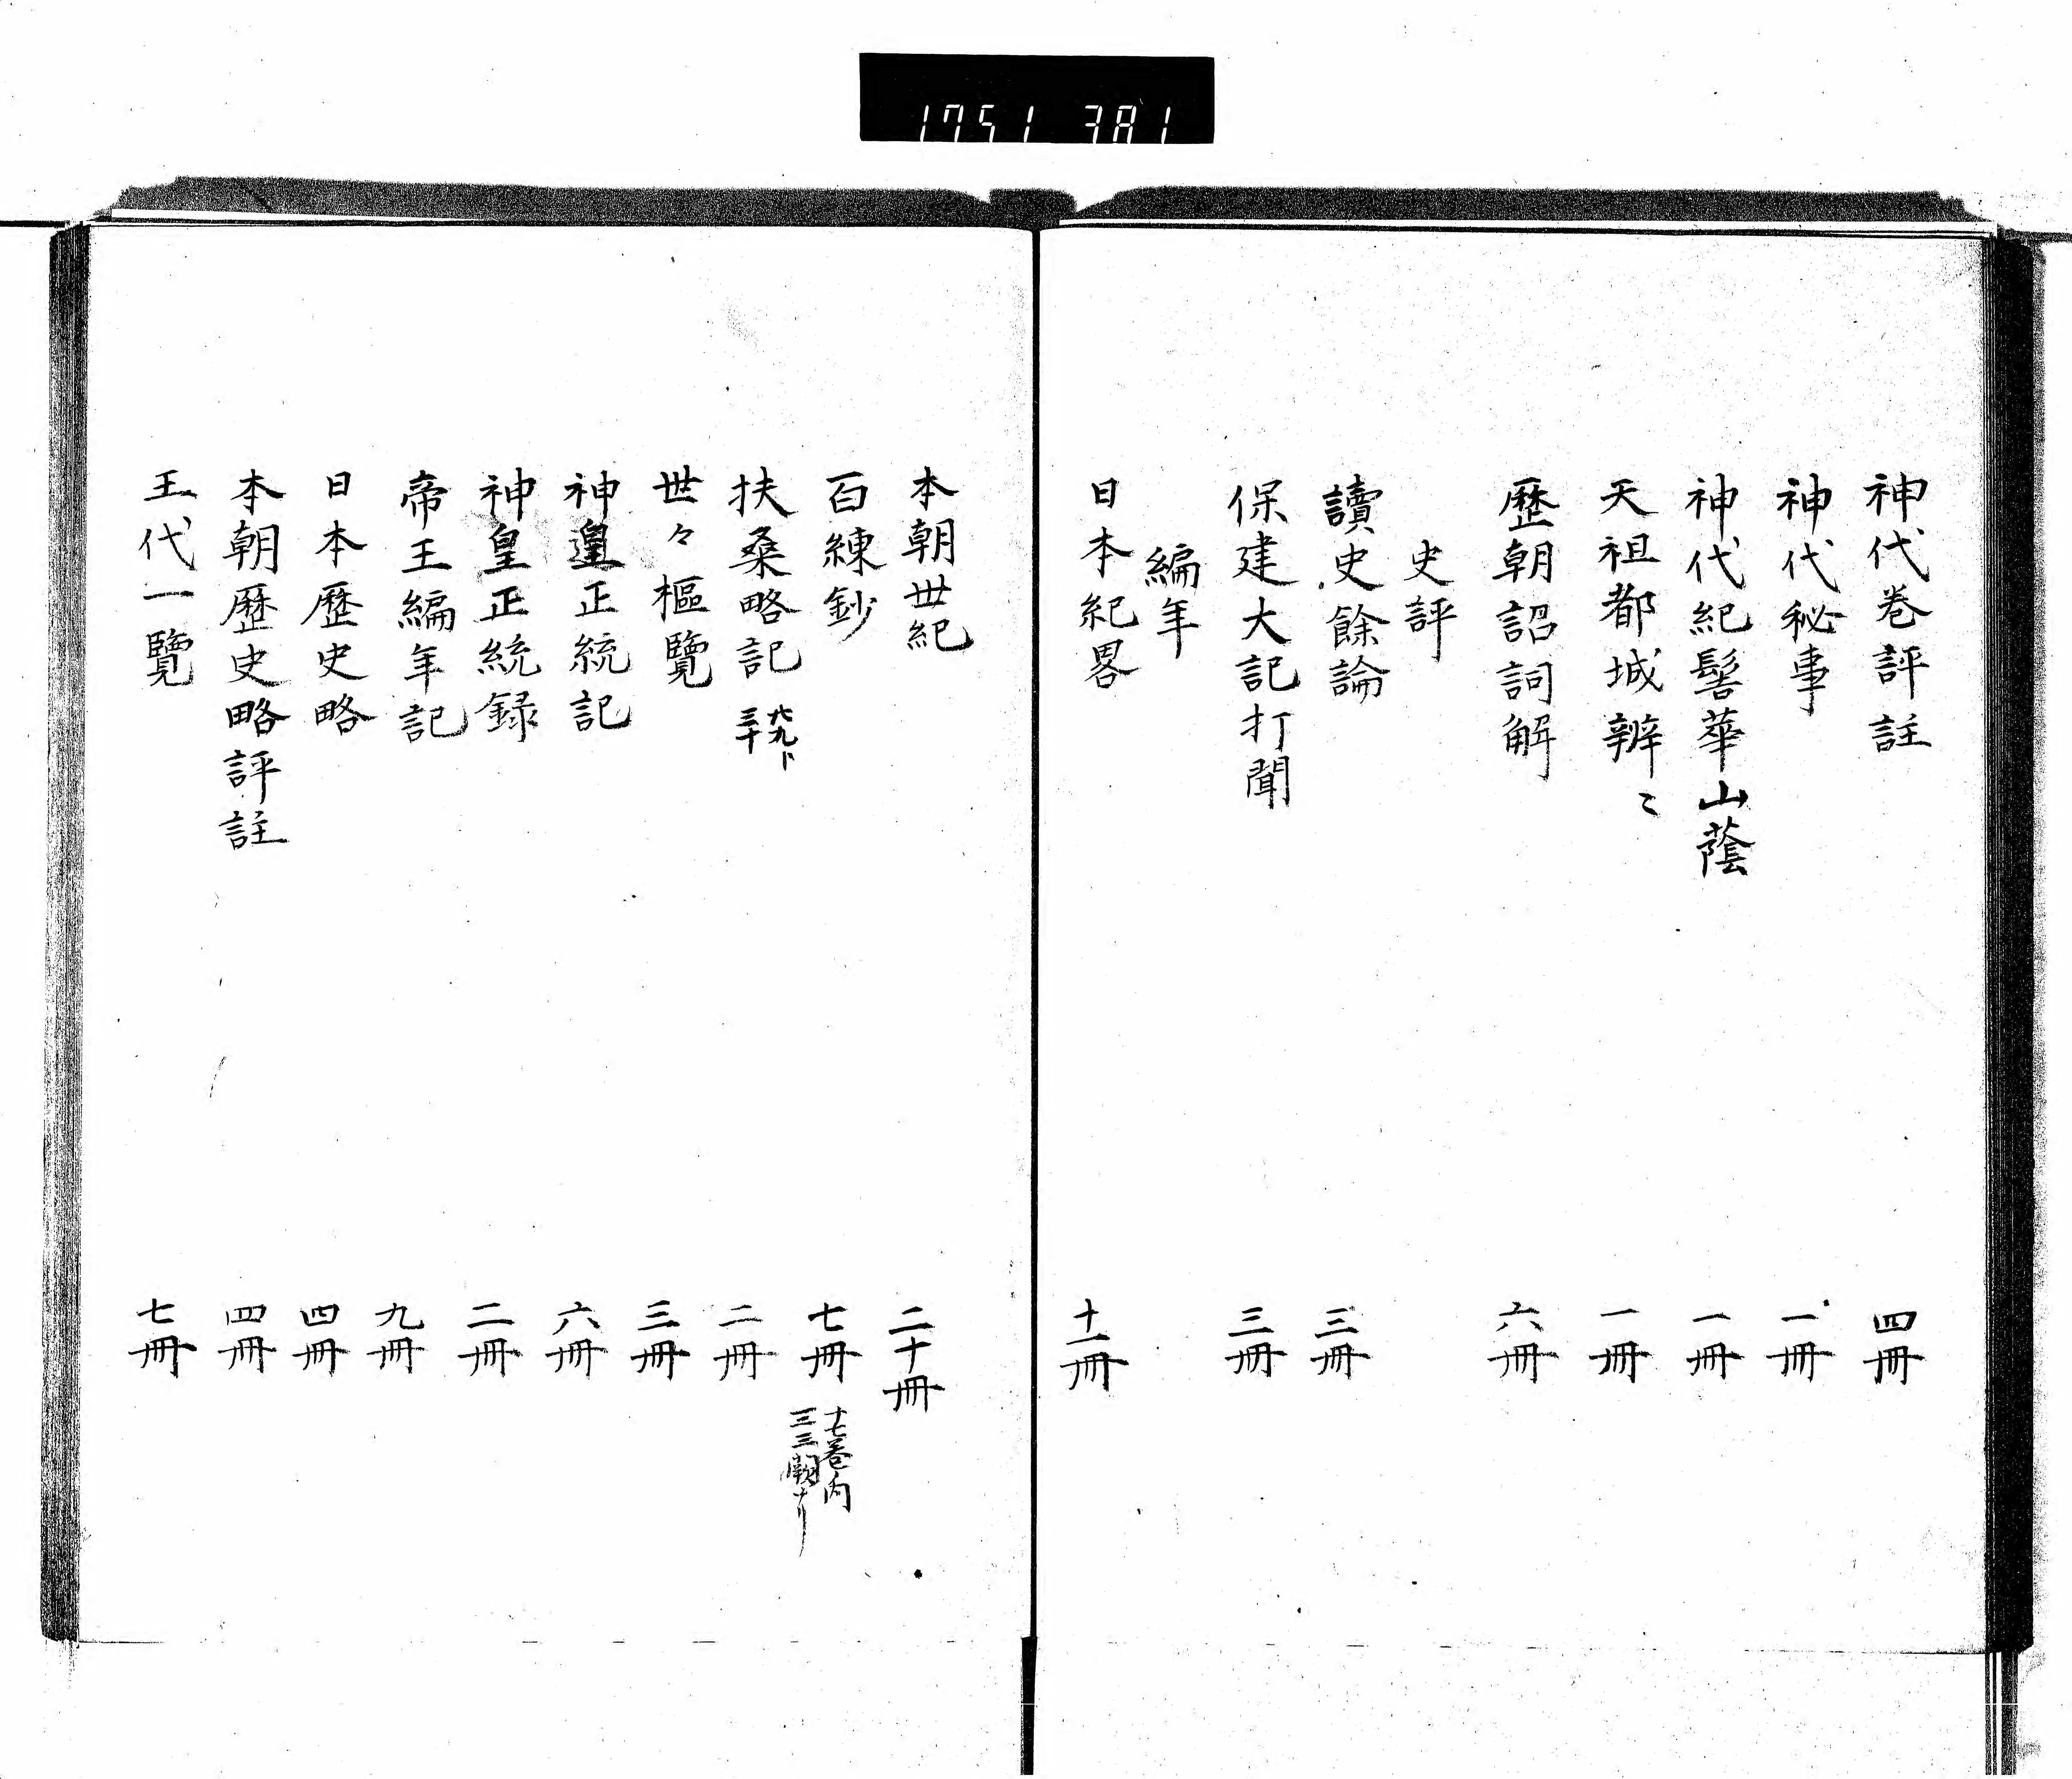 1751 381
神代巻評註 四冊
神代秘事 一冊
神代紀髻華山蔭 一冊
天祖都城辨〻 一冊
歷朝詔詞解 六冊
史評
讀史餘論 三冊
保建大記打聞 三冊
編年
日本紀畧 十一冊
本朝世紀 二十冊
百練鈔 七冊 十七巻内
一二三闕ナリ
扶桑略記 二冊
世々樞覽 三冊
神皇正統記 六冊
神皇正統録 二冊
帝王編年記 九冊
日本歷史略 四冊
本朝歷史略評註 四冊
王代一覽 七冊